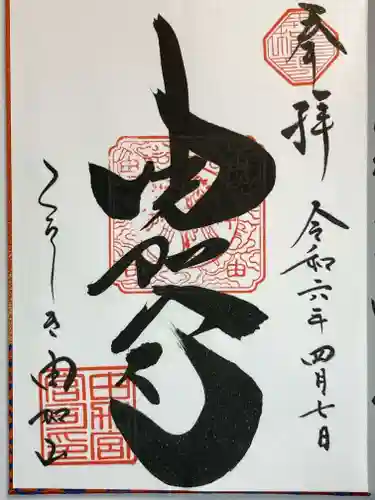 奉拝
令和六年四月七日
由加宮
くらしき由加山